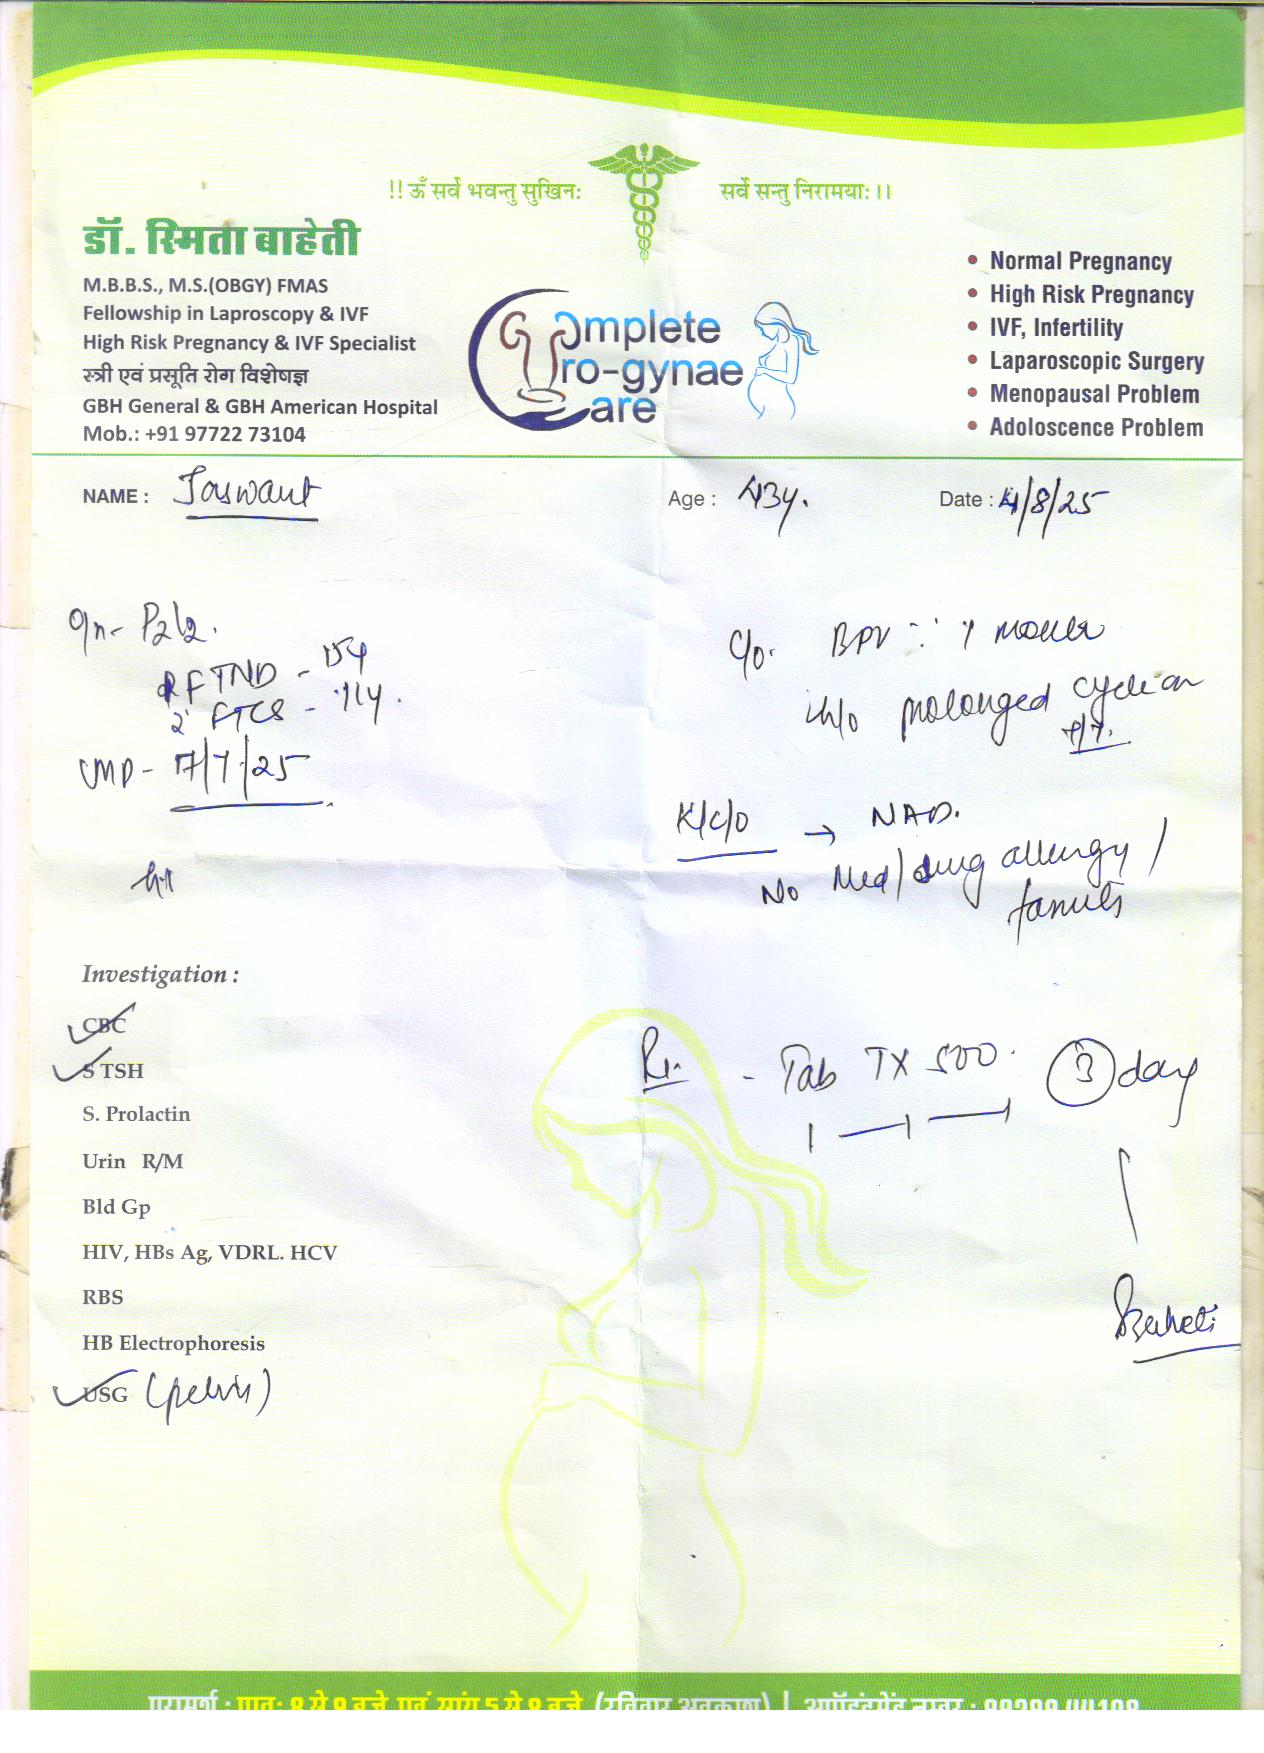 !! ॐ सर्वे भवन्तु सुखिनः सर्वे सन्तु निरामयाः।।
डॉ. स्मिता बाहेती
M.B.B.S., M.S.(OBGY) FMAS
Fellowship in Laproscopy & IVF
High Risk Pregnancy & IVF Specialist
स्त्री एवं प्रसूति रोग विशेषज्ञ
GBH General & GBH American Hospital
Mob.: +91 97722 73104
Complete
Uro-gynae
Care
• Normal Pregnancy
• High Risk Pregnancy
• IVF, Infertility
• Laparoscopic Surgery
• Menopausal Problem
• Adoloscence Problem
NAME : Jaswant Age : 43y. Date : 4/8/25
P2L2.
FTND -
2 FTCS - 11y.
LMP - 17/7/25
C/o. BPV 1 month
h/o prolonged cycle on
K/C/O → NAD.
No Med/drug allergy/
Investigation :
CBC
S TSH
S. Prolactin
Urin R/M
Bld Gp
HIV, HBs Ag, VDRL. HCV
RBS
HB Electrophoresis
USG (pelvis)
Rx. - Tab TX 500. 3 day
1 — 1 — 1
SBaheti
परामर्श : प्रातः 8 से 9 बजे एवं सायं 5 से 8 बजे (रविवार अवकाश) |